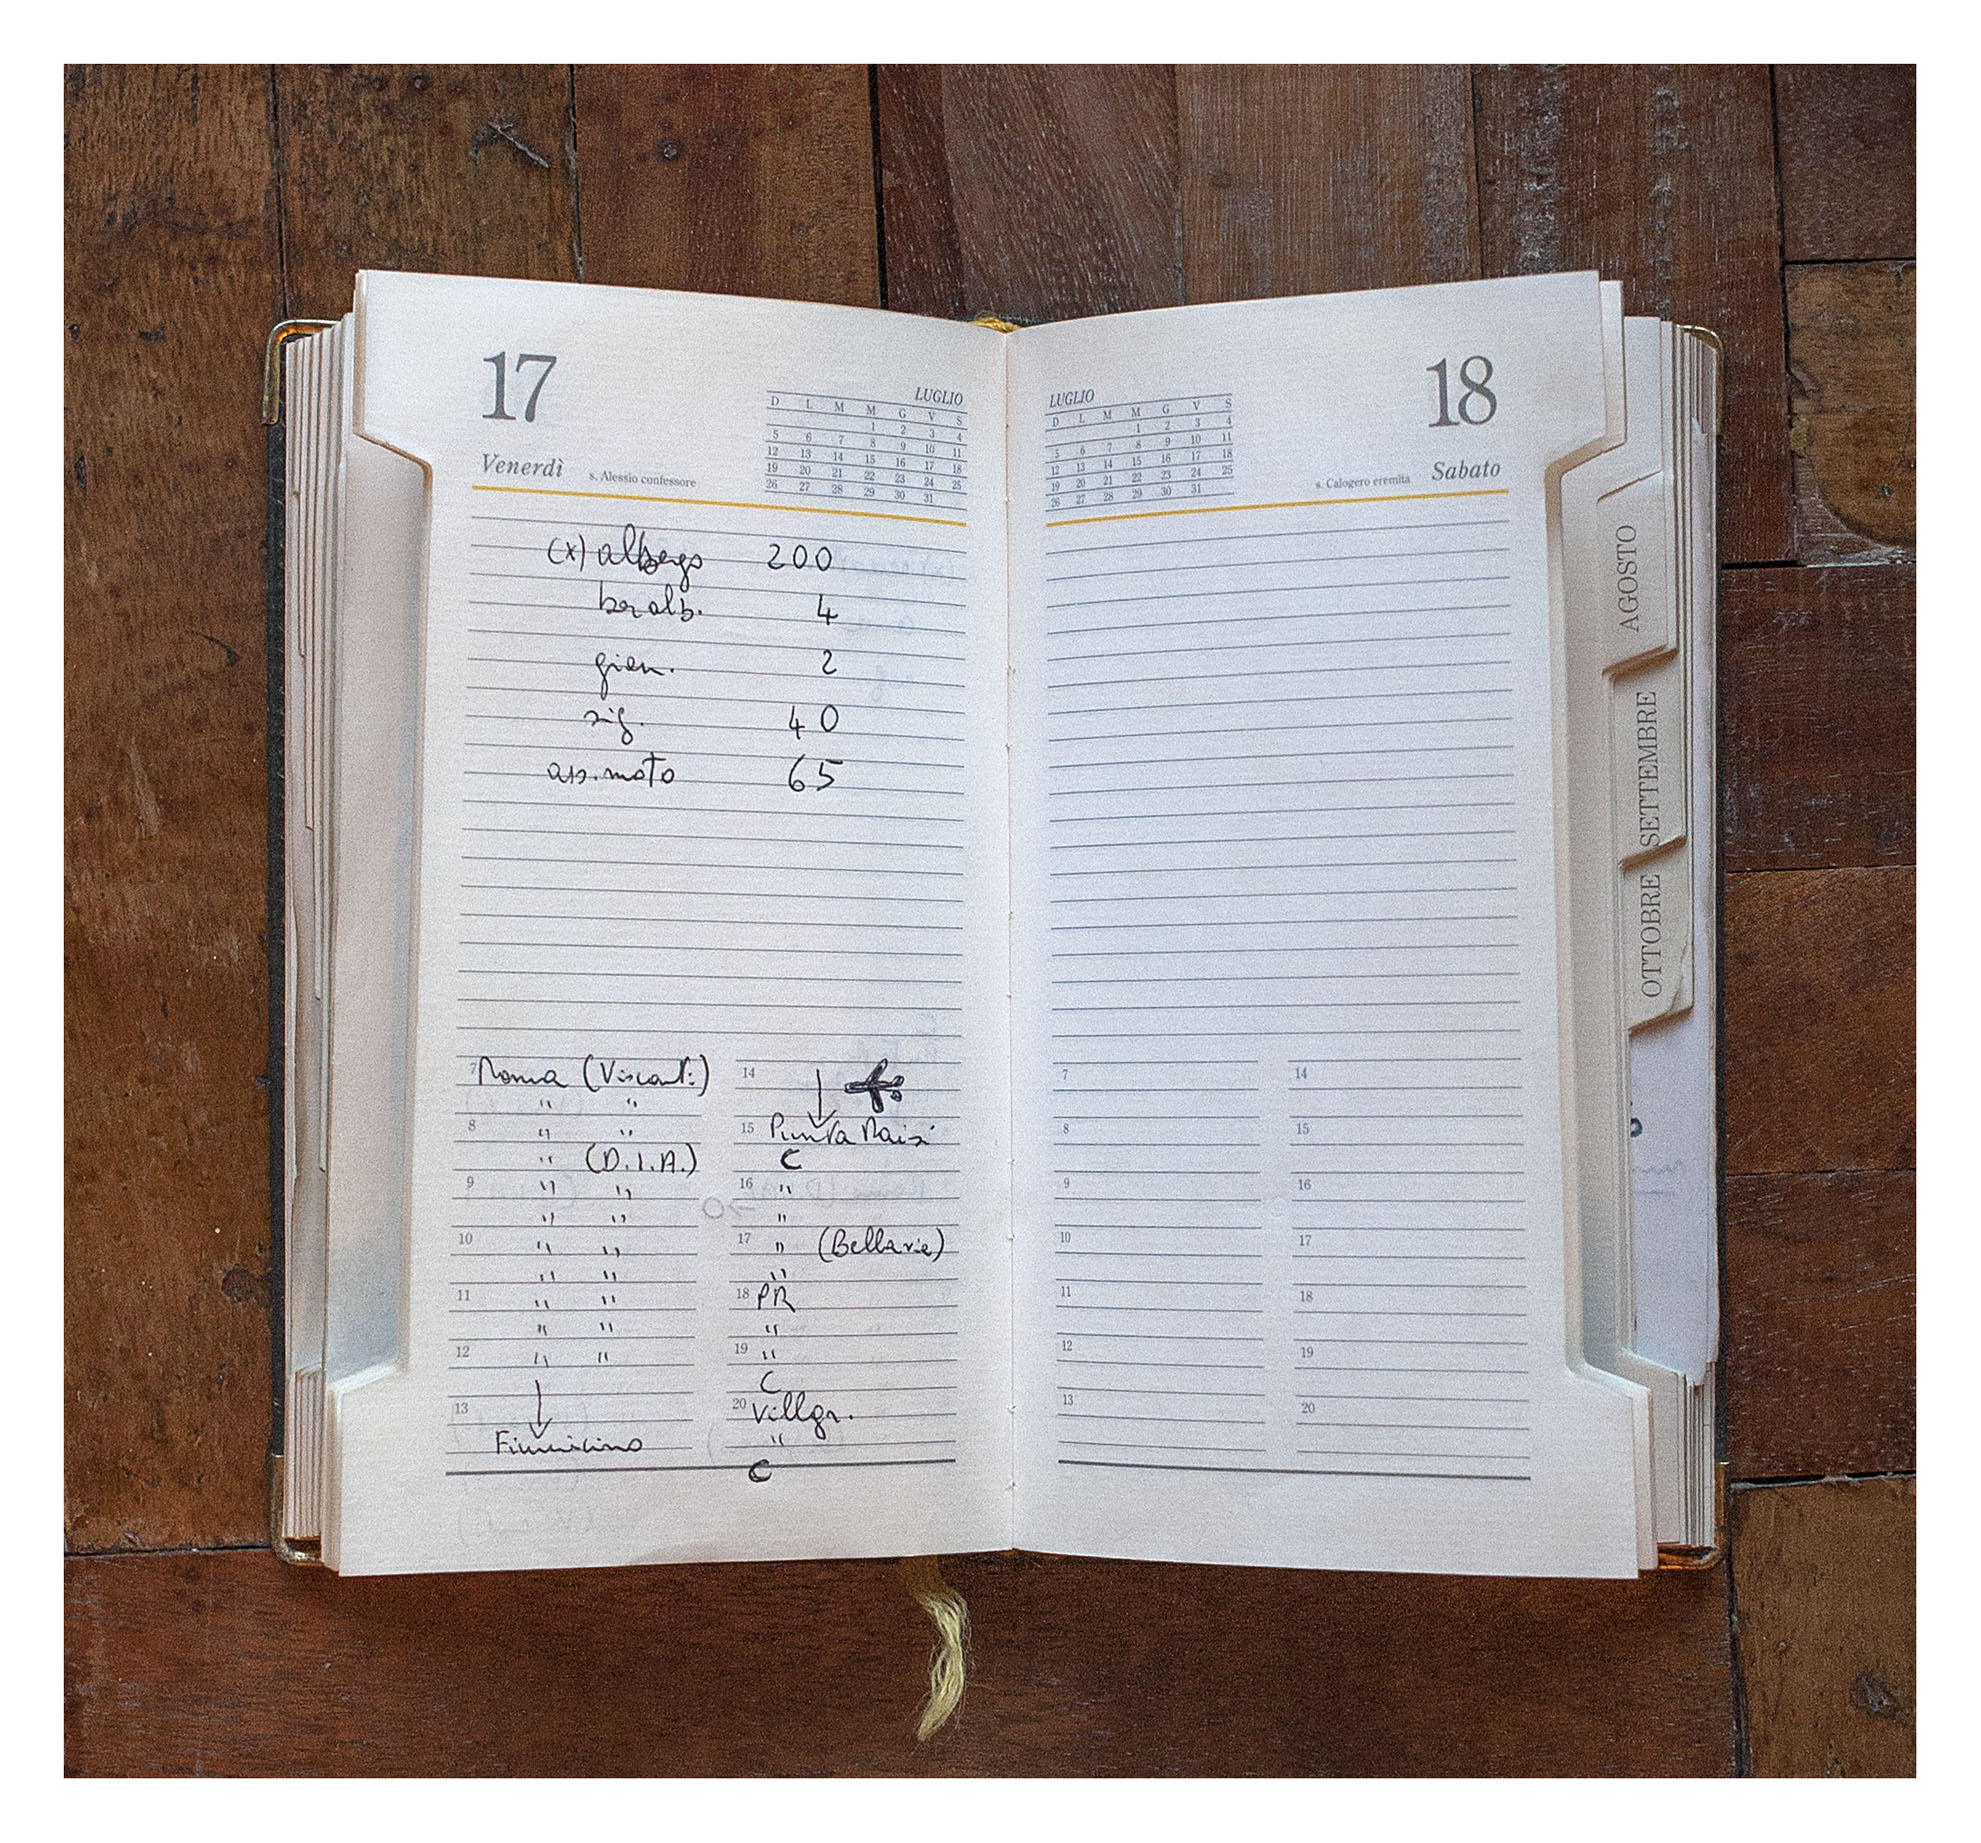 17
Venerdì s. Alessio confessore
LUGLIO
D L M M G V S
1 2 3 4
5 6 7 8 9 10 11
12 13 14 15 16 17 18
19 20 21 22 23 24 25
26 27 28 29 30 31
(x) albergo 200
bar alb. 4
gion. 2
sig. 40
ass. moto 65
7 Roma (Visconti)
" "
8 " "
" (D.I.A.)
9 " "
" "
10 " "
" "
11 " "
" "
12 " "
13
Fiumicino
14
15 Punta Raisi
C
16 "
"
17 " (Bellavie)
"
18 PR
"
19 "
C
20 Villgr.
"
C
LUGLIO
D L M M G V S
1 2 3 4
5 6 7 8 9 10 11
12 13 14 15 16 17 18
19 20 21 22 23 24 25
26 27 28 29 30 31
18
s. Calogero eremita Sabato
7
8
9
10
11
12
13
14
15
16
17
18
19
20
AGOSTO
SETTEMBRE
OTTOBRE